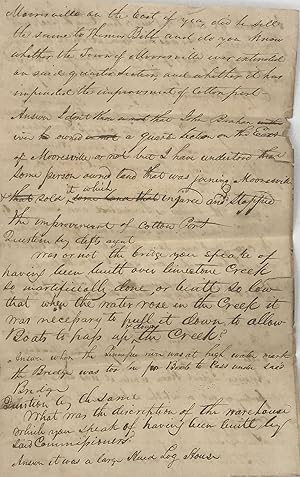 Mooresville on the East if yea, did he sell
the same to Thomas Bibb and do you know
whether the Town of Mooresville ever extended
on said quarter section and whether it has
impended the improvement of Cotton port
Answer I dont know or not that John Bonham
ever he owned or not a quart section on the East
of Mooresville or not but I have understood that
some person owned land that was joining Mooresville
& that sold it which some land that injured and stopped
the improvement of Cotton Port
Question by Defts agent
Was or not the bridge you speake of
having been built over limestone Creek
so inartificially done or built so low
that when the water rose in the Creek it
was necessary to pull it down to allow
Boats to pass up the Creek?
Answer when the Tennessee river was at high water mark
the Bridge was too low for Boats to Pass under said
Bridge
Question by the same
What was the discription of the warehouse
which you speak of having been built by
said Commissioners
Answer it was a large Hewd Log House